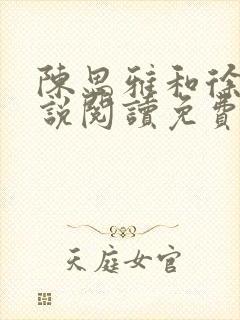 陳思雅和徐
說閱讀免費
天庭女官